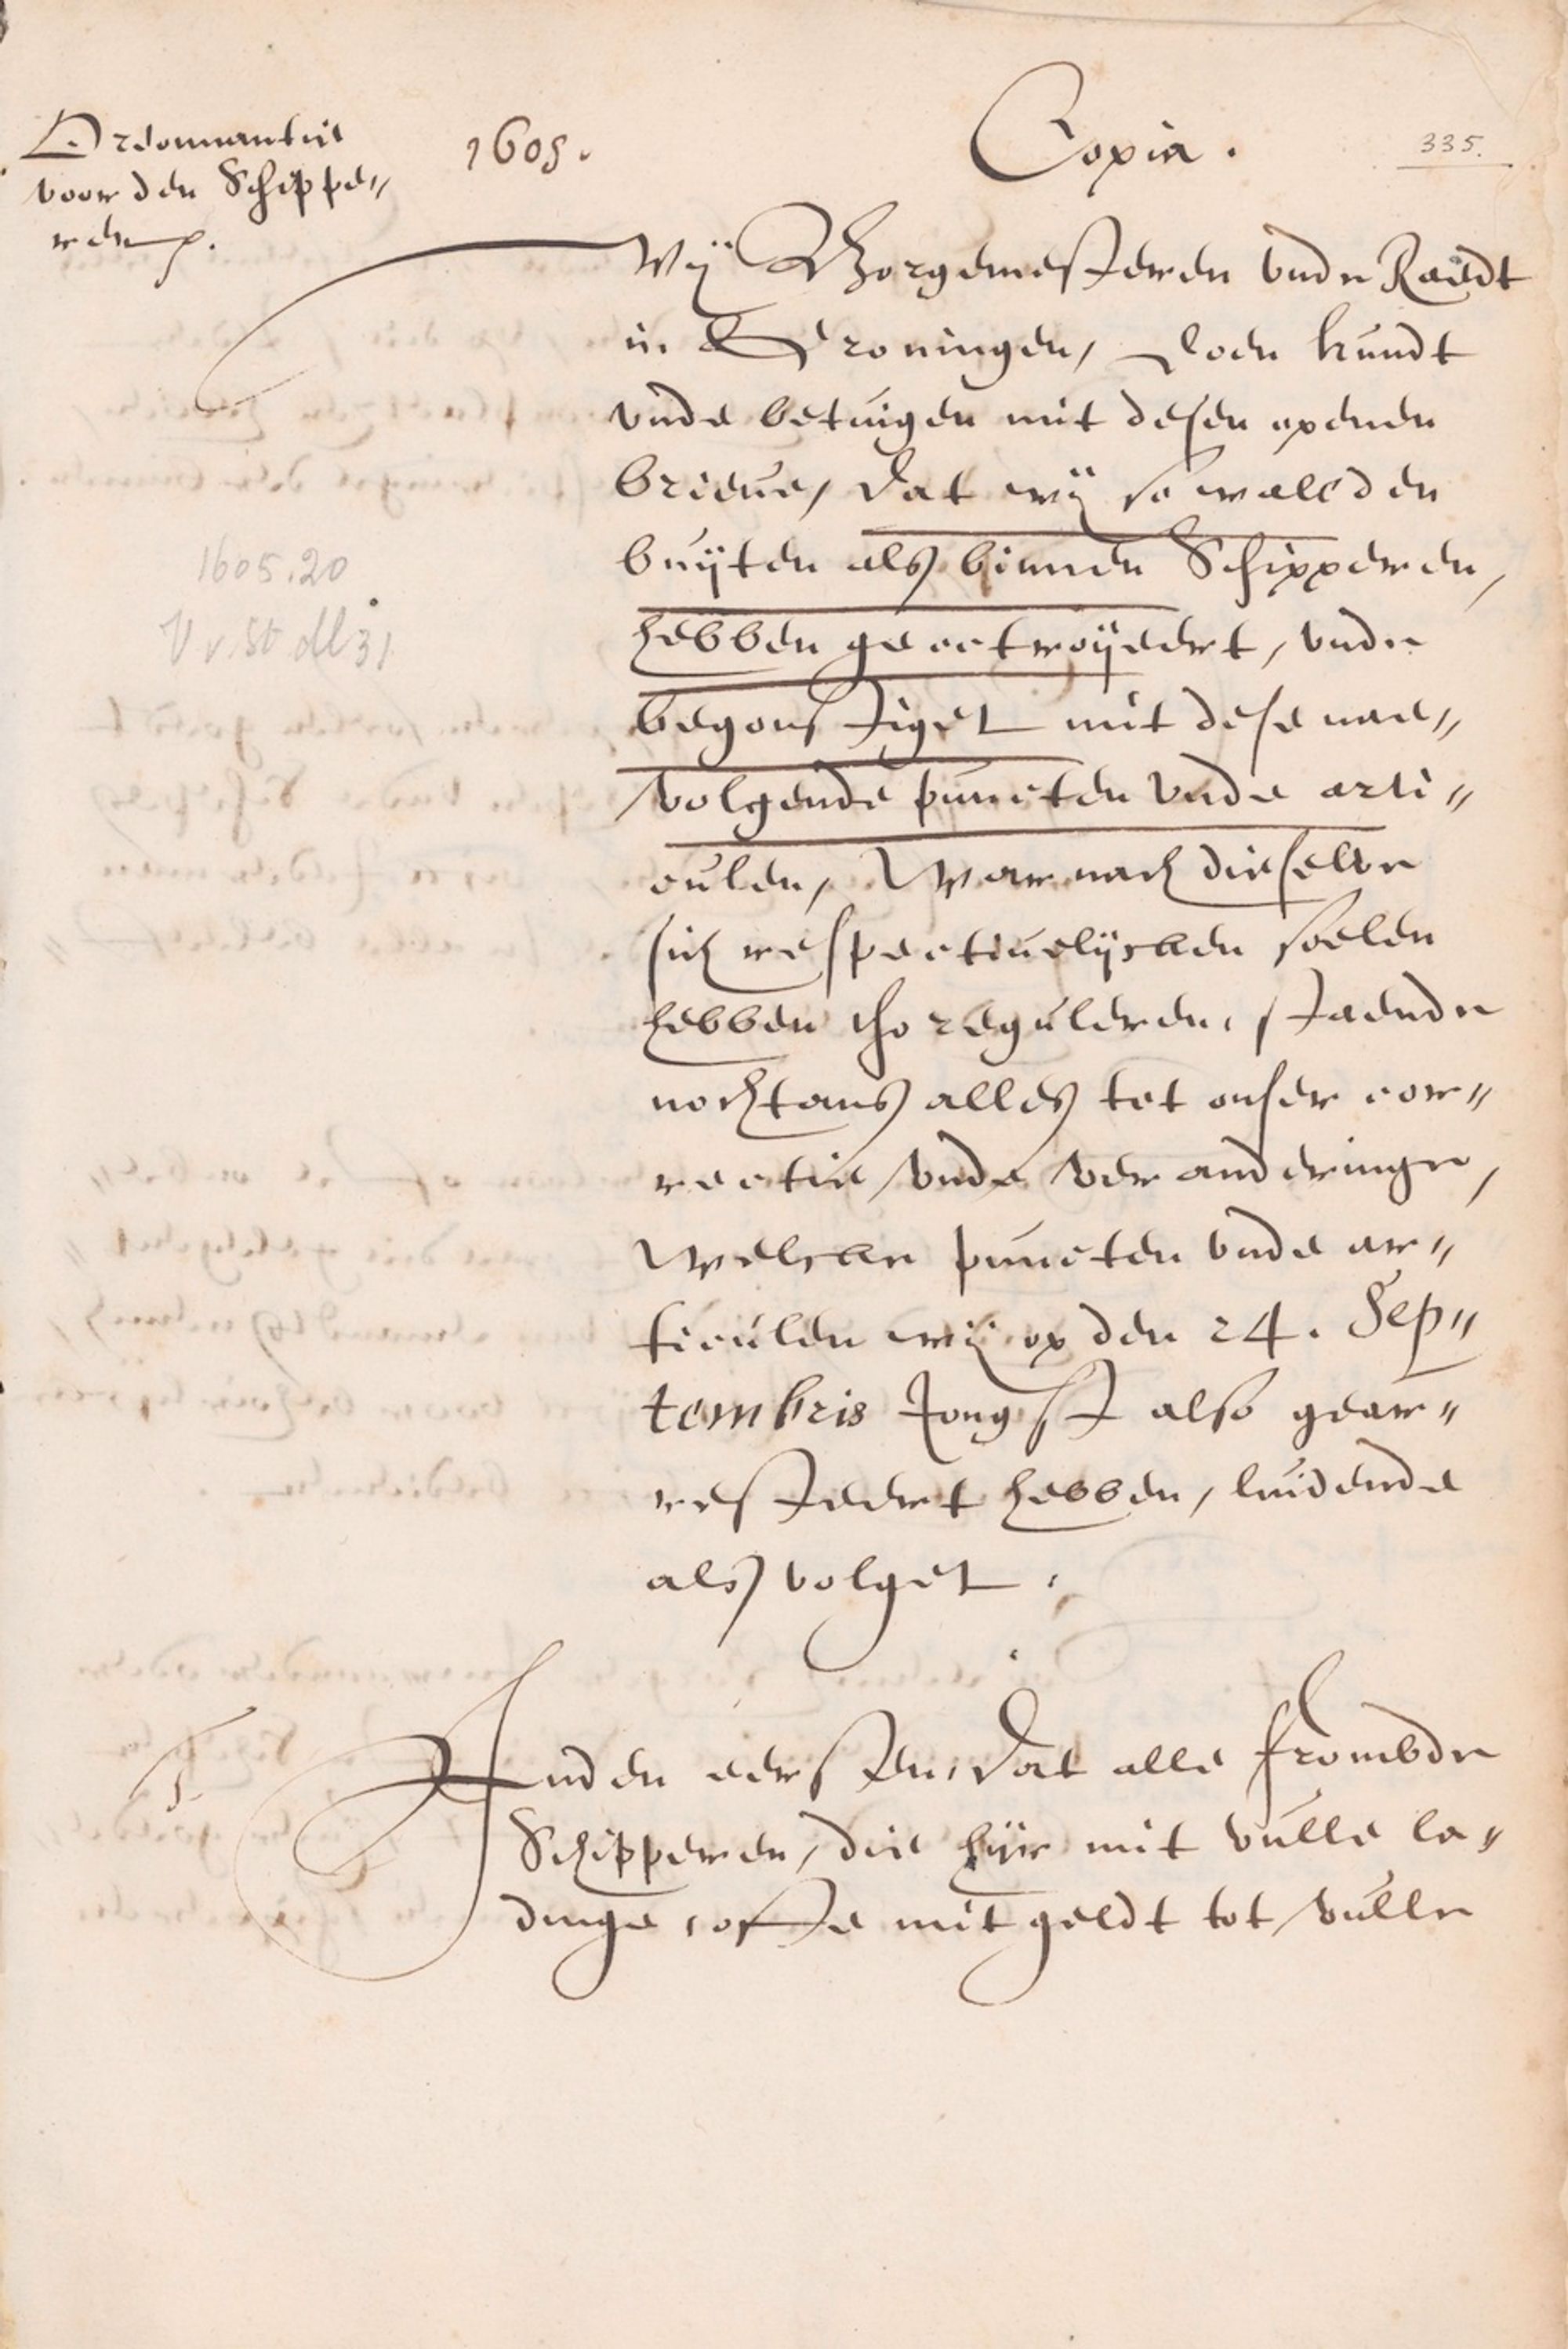 Ordonnantie
voor den Schippe"
ren.
1605.
Copia.
335.
Wij Borgemesteren unde Raedt
in Groningen, doen kundt
unde betuigen mit desen openen
brieue, dat wij so wall den
buijten als binnen Schipperen,
hebben geoctroijeert, unde
begonstiget mit dese nae"
volgende puncten unde arti"
culen, Waer nach dieselve
sich respectiuelijcken soelen
hebben tho reguleren, staende
nochtans alles tot onser cor"
rectie unde veranderinge,
Welcke puncten unde ar"
ticulen wij op den 24. Sep"
tembris jongst also gear"
resteert hebben, luidende
als volget.
1605.20
V v. St. dl 31
1.
Anden eersten, dat alle frombde
Schipperen, die hijr mit vulle la"
dinge, ofte mit geldt tot vulle